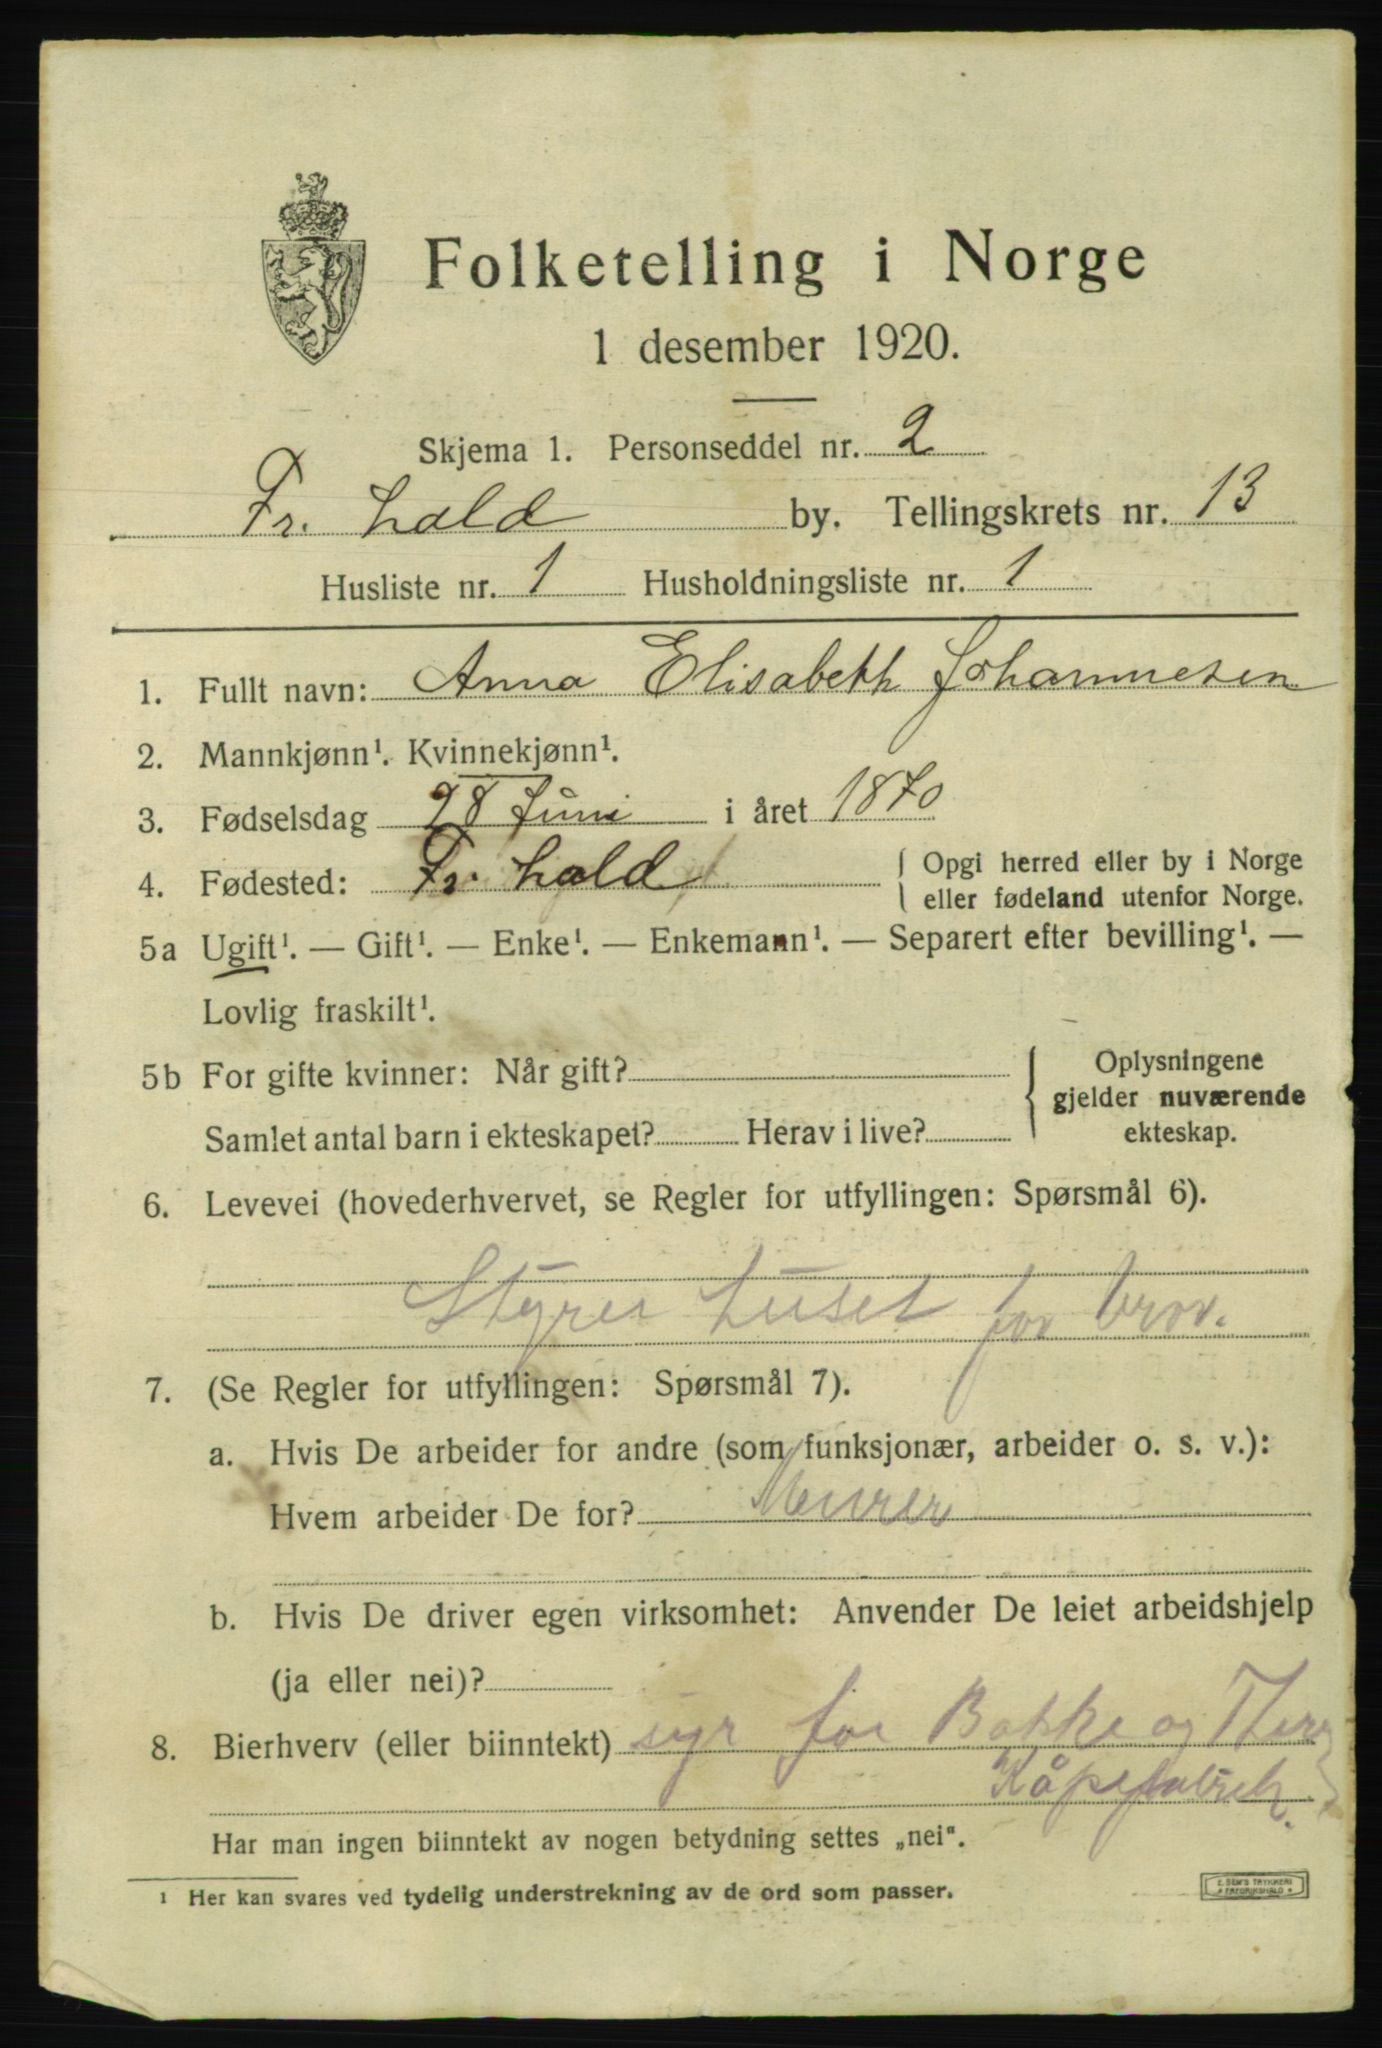 Folketelling i Norge
1 desember 1920.
Skjema 1. Personseddel nr. 2
Fr.hald by. Tellingskrets nr. 13
Husliste nr. 1 Husholdningsliste nr. 1
1. Fullt navn: Anna Elisabeth Johannesen
2. Mannkjønn¹. Kvinnekjønn¹.
3. Fødselsdag 28 Juni i året 1870
4. Fødested: Fr.hald { Opgi herred eller by i Norge
eller fødeland utenfor Norge.
5a Ugift¹. — Gift¹. — Enke¹. — Enkemann¹. — Separert efter bevilling¹. —
Lovlig fraskilt¹.
5b For gifte kvinner: Når gift? { Oplysningene
gjelder nuværende
Samlet antal barn i ekteskapet? Herav i live? ekteskap.
6. Levevei (hovederhvervet, se Regler for utfyllingen: Spørsmål 6).
Styrer huset for bror.
7. (Se Regler for utfyllingen: Spørsmål 7).
a. Hvis De arbeider for andre (som funksjonær, arbeider o. s. v.):
Hvem arbeider De for? Murer
b. Hvis De driver egen virksomhet: Anvender De leiet arbeidshjelp
(ja eller nei)?
8. Bierhverv (eller biinntekt) syr for Bakke og
Kåpefabrik.
Har man ingen biinntekt av nogen betydning settes „nei".
¹ Her kan svares ved tydelig understrekning av de ord som passer.
E. SEM'S TRYKKERI
FREDRIKSHALD